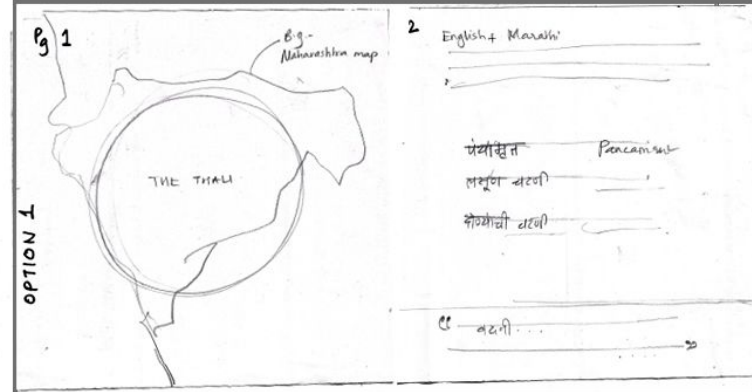 Pg 1
B.g.-
Maharashtra map
THE THALI
OPTION 1
2
English + Marathi
पंचामृत Pancamrut
लसूण चटणी
शेंगदाण्याची चटणी